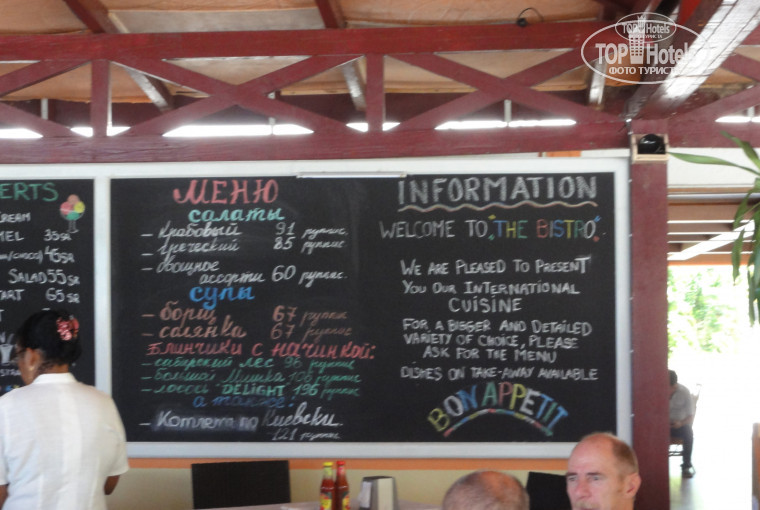 TOP Hotels
ТУРИСТА
TOP Hotels
ФОТО ТУРИСТА
ERTS
CREAM
MEL 35SR
45SR
SALAD 55SR
TART 65SR
МЕНЮ
САЛАТЫ
- Крабовый 91 рупкис.
- Греческий 85 рупкис
- Овощное
ассорти 60 рупкис.
СУПЫ
- борщ 67 рупкис
- солянка 67 рупкис
БЛИНЧИКИ С НАЧИНКОЙ:
- сибирский лес 96 рупкис
- большой Мишка 106 рупкис
- лосось DELIGHT 196 рупкис
а также:
- Котлета по Киевски.
121 рупкис
INFORMATION
WELCOME TO "THE BISTRO"
WE ARE PLEASED TO PRESENT
YOU OUR INTERNATIONAL
CUISINE
FOR A BIGGER AND DETAILED
VARIETY OF CHOICE, PLEASE
ASK FOR THE MENU
DISHES ON TAKE-AWAY AVAILABLE
BON APPETIT